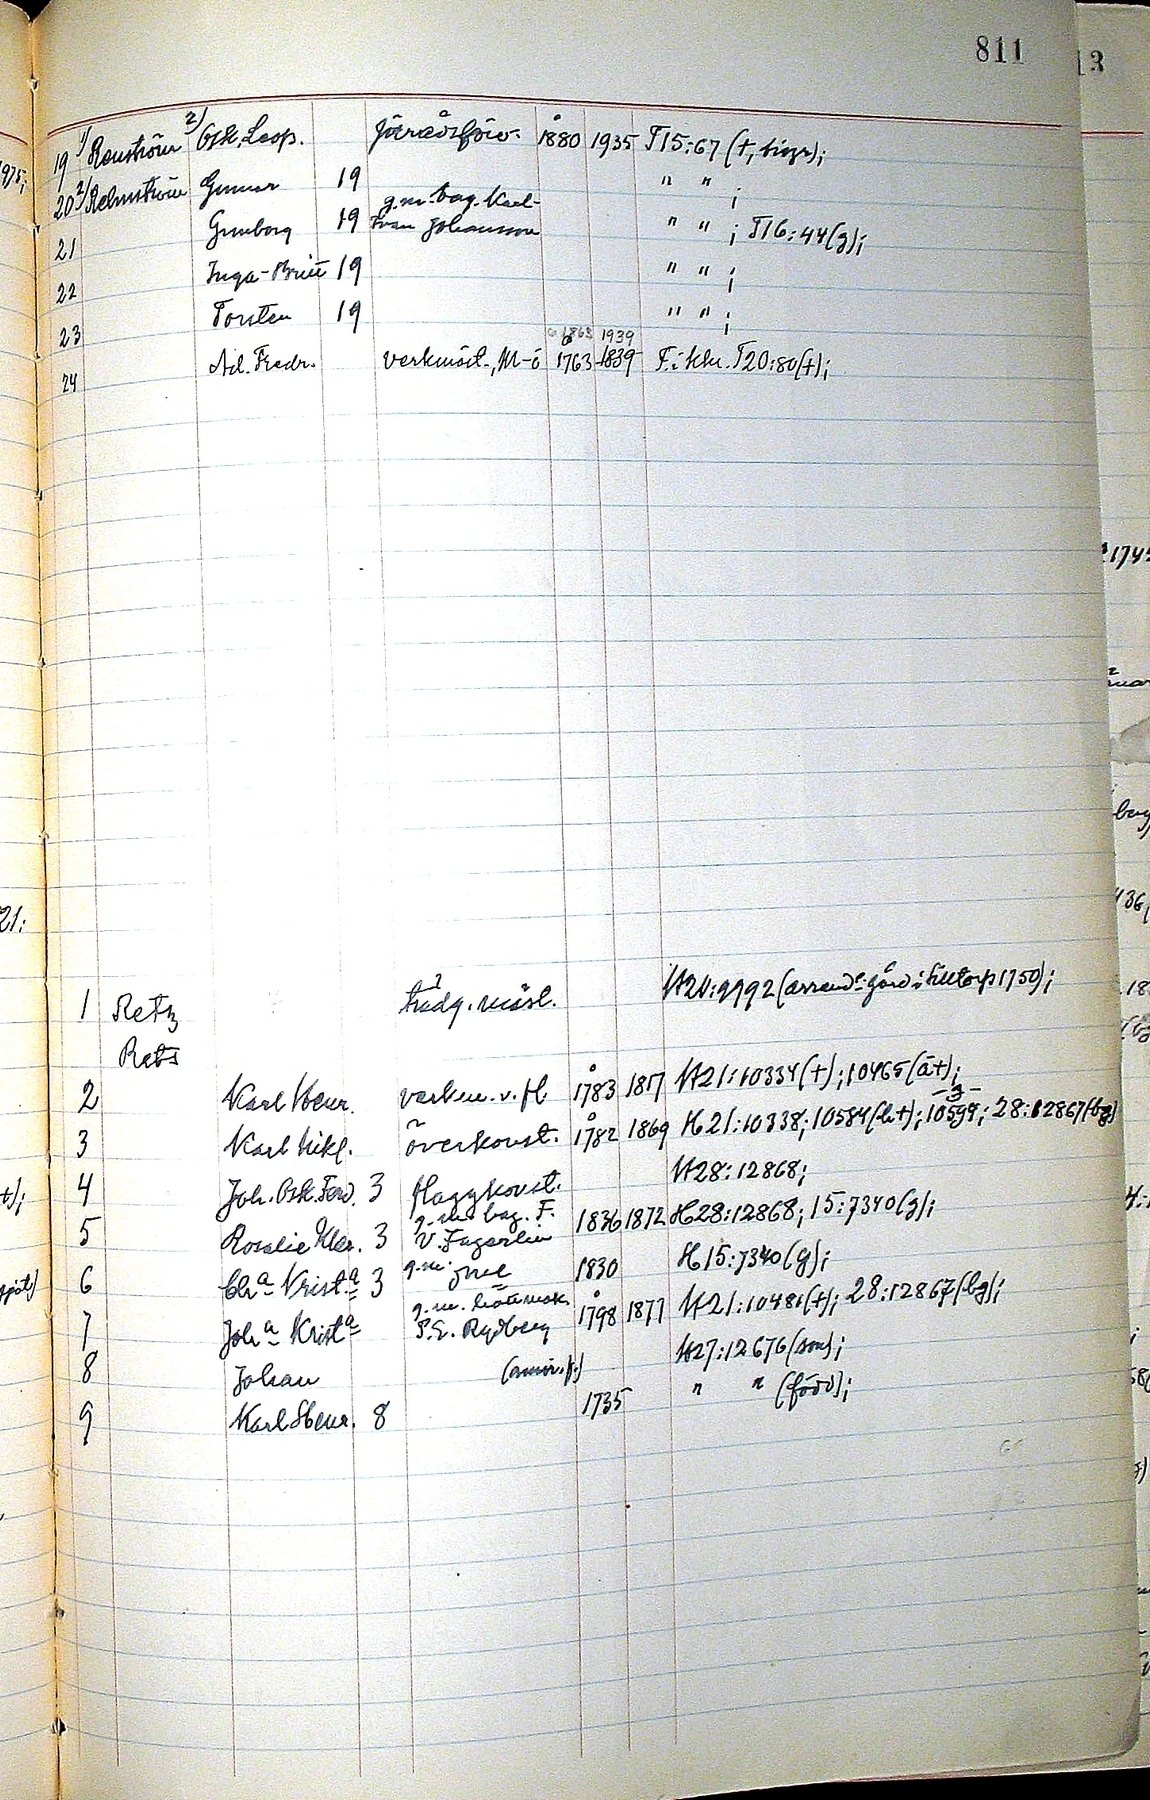 811
19 1) Renström 2) Osk. Leop. förrådsförv. 1880 1935 T15:67 (†, biogr);
20 2) Rehnström Gunnar 19 " " ;
21 Gunborg 19 g.m. bag. Karl-Ivan Johansson " " ; T16:44(g);
22 Inga-Britt 19 " " ;
23 Torsten 19 " " ;
1863 1939
24 Ad. Fredr. verkmäst., M-ö 1763 1839 F. i kkr. T20:80(†);
1 Retz trädg. mäst. H20:9992 (arrend. gård i Filltorp 1750);
Rets
2 Karl Henr. verkm. v. fl. 1783 1817 H21:10334(†); 10465(ä†);
3 Karl Mikl. överkonst. 1782 1869 H21:10338; 10584(h†); 10599; 28:12867(bg)
4 Joh. Osk. Ferd. 3 flaggkonst. H28:12868;
5 Rosalie Klar. 3 g.m. bag. F. V. Fagerlin 1836 1872 H28:12868; 15:7340(g);
6 Chra Krista 3 g.m. 1830 H15:7340(g);
7 Joha Krista g.m. P.E. Rydberg 1798 1877 H21:10481(†); 28:12867(bg);
8 Johan H27:12676(son);
9 Karl Henr. 8 1735 " " (född);